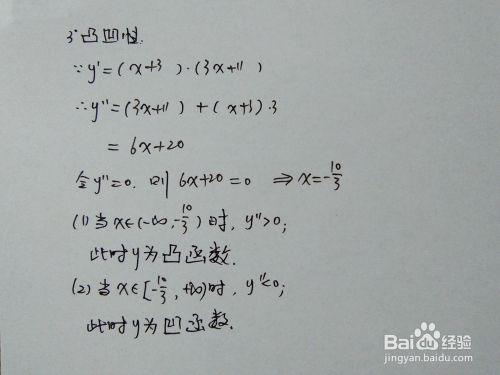 3°凸凹性.
∵y'=(x+3)·(3x+11)
∴y''=(3x+11)+(x+3)·3
=6x+20
令y''=0. 则 6x+20=0 ⇒x=-10/3
(1)当x∈(-∞,-10/3)时, y''>0;
此时y为凸函数.
(2)当x∈[-10/3,+∞)时, y''<0;
此时y为凹函数.
Baidu经验
jingyan.baidu.com